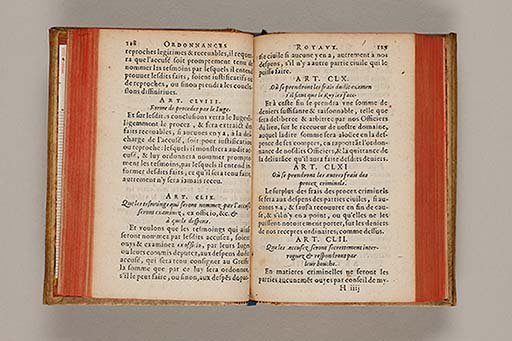 118 ORDONNANCES
reproches legitimes & receuables, il requer-
ra que l'accusé soit promptement tenu de
nommer les tesmoins par lesquels il entend
prouuer lesdits faits, soient iustificatifs ou
de reproches, ou sinon prendra les conclu-
sions diffinitiues.
ART. CLVIII.
Forme de proceder par le Iuge.
Et sur lesdites conclusions verra le Iuge di-
ligemment le procez, & fera extraict des
faits receuables, si aucuns en y a, à la des-
charge de l'accusé, soit pour iustification
ou reproche: lesquels il monstrera audit ac-
cusé, & luy ordonnera nommer prompte-
ment les tesmoins, par lesquels il entend in-
former desdits faits, ce qu'il sera tenu faire,
autrement n'y sera iamais receu.
ART. CLIX.
Que les tesmoings qui seront nommez par l'accusé
seront examinez, ex officio, &c. &
à quels despens.
Et voulons que les tesmoings qui ainsi
seront nommez par lesdits accusez, soient
ouys & examinez ex officio, par iceux Iuges
ou leurs commis deputez, aux despens dudit
accusé, qui sera tenu consigner au Greffe
la somme que par ce luy sera ordonnee,
s'il le peut faire, ou sinon, aux despēs de par-
ROYAVX. 119
tie ciuile si aucune y en a, autrement à nos
despens, s'il n'y a autre partie ciuile qui le
puisse faire.
ART. CLX.
Où se prendront les frais dudit examen
s'il faut que le Roy les face.
Et à ceste fin se prendra vne somme de
deniers suffisante & raisonnable, telle que
sera deliberee & arbitree par nos Officiers
du lieu, sur le receueur de nostre domaine,
auquel ladite somme sera allouee en la des-
pence de ses comptes, en rapportāt l'ordon-
nance de nosdits Officiers, & la quittance de
la deliurāce qu'il aura faite desdits deniers.
ART. CLXI
Où se prendront les autres frais des
procez criminels.
Le surplus des frais des procez criminels
se fera aux despens des parties ciuiles, si au-
cunes y a, & sauf à recouurer en fin de cau-
se, & s'il n'y en a point, ou qu'elles ne les
puissent notoirement porter, sur les deniers
de nos receptes ordinaires, comme dessus.
ART. CLII.
Que les accusez seront secrettement inter-
roguez & respondront par
leur bouche.
En matieres criminelles ne seront les
parties aucunemēt ouyes par conseil de my-
H iiij